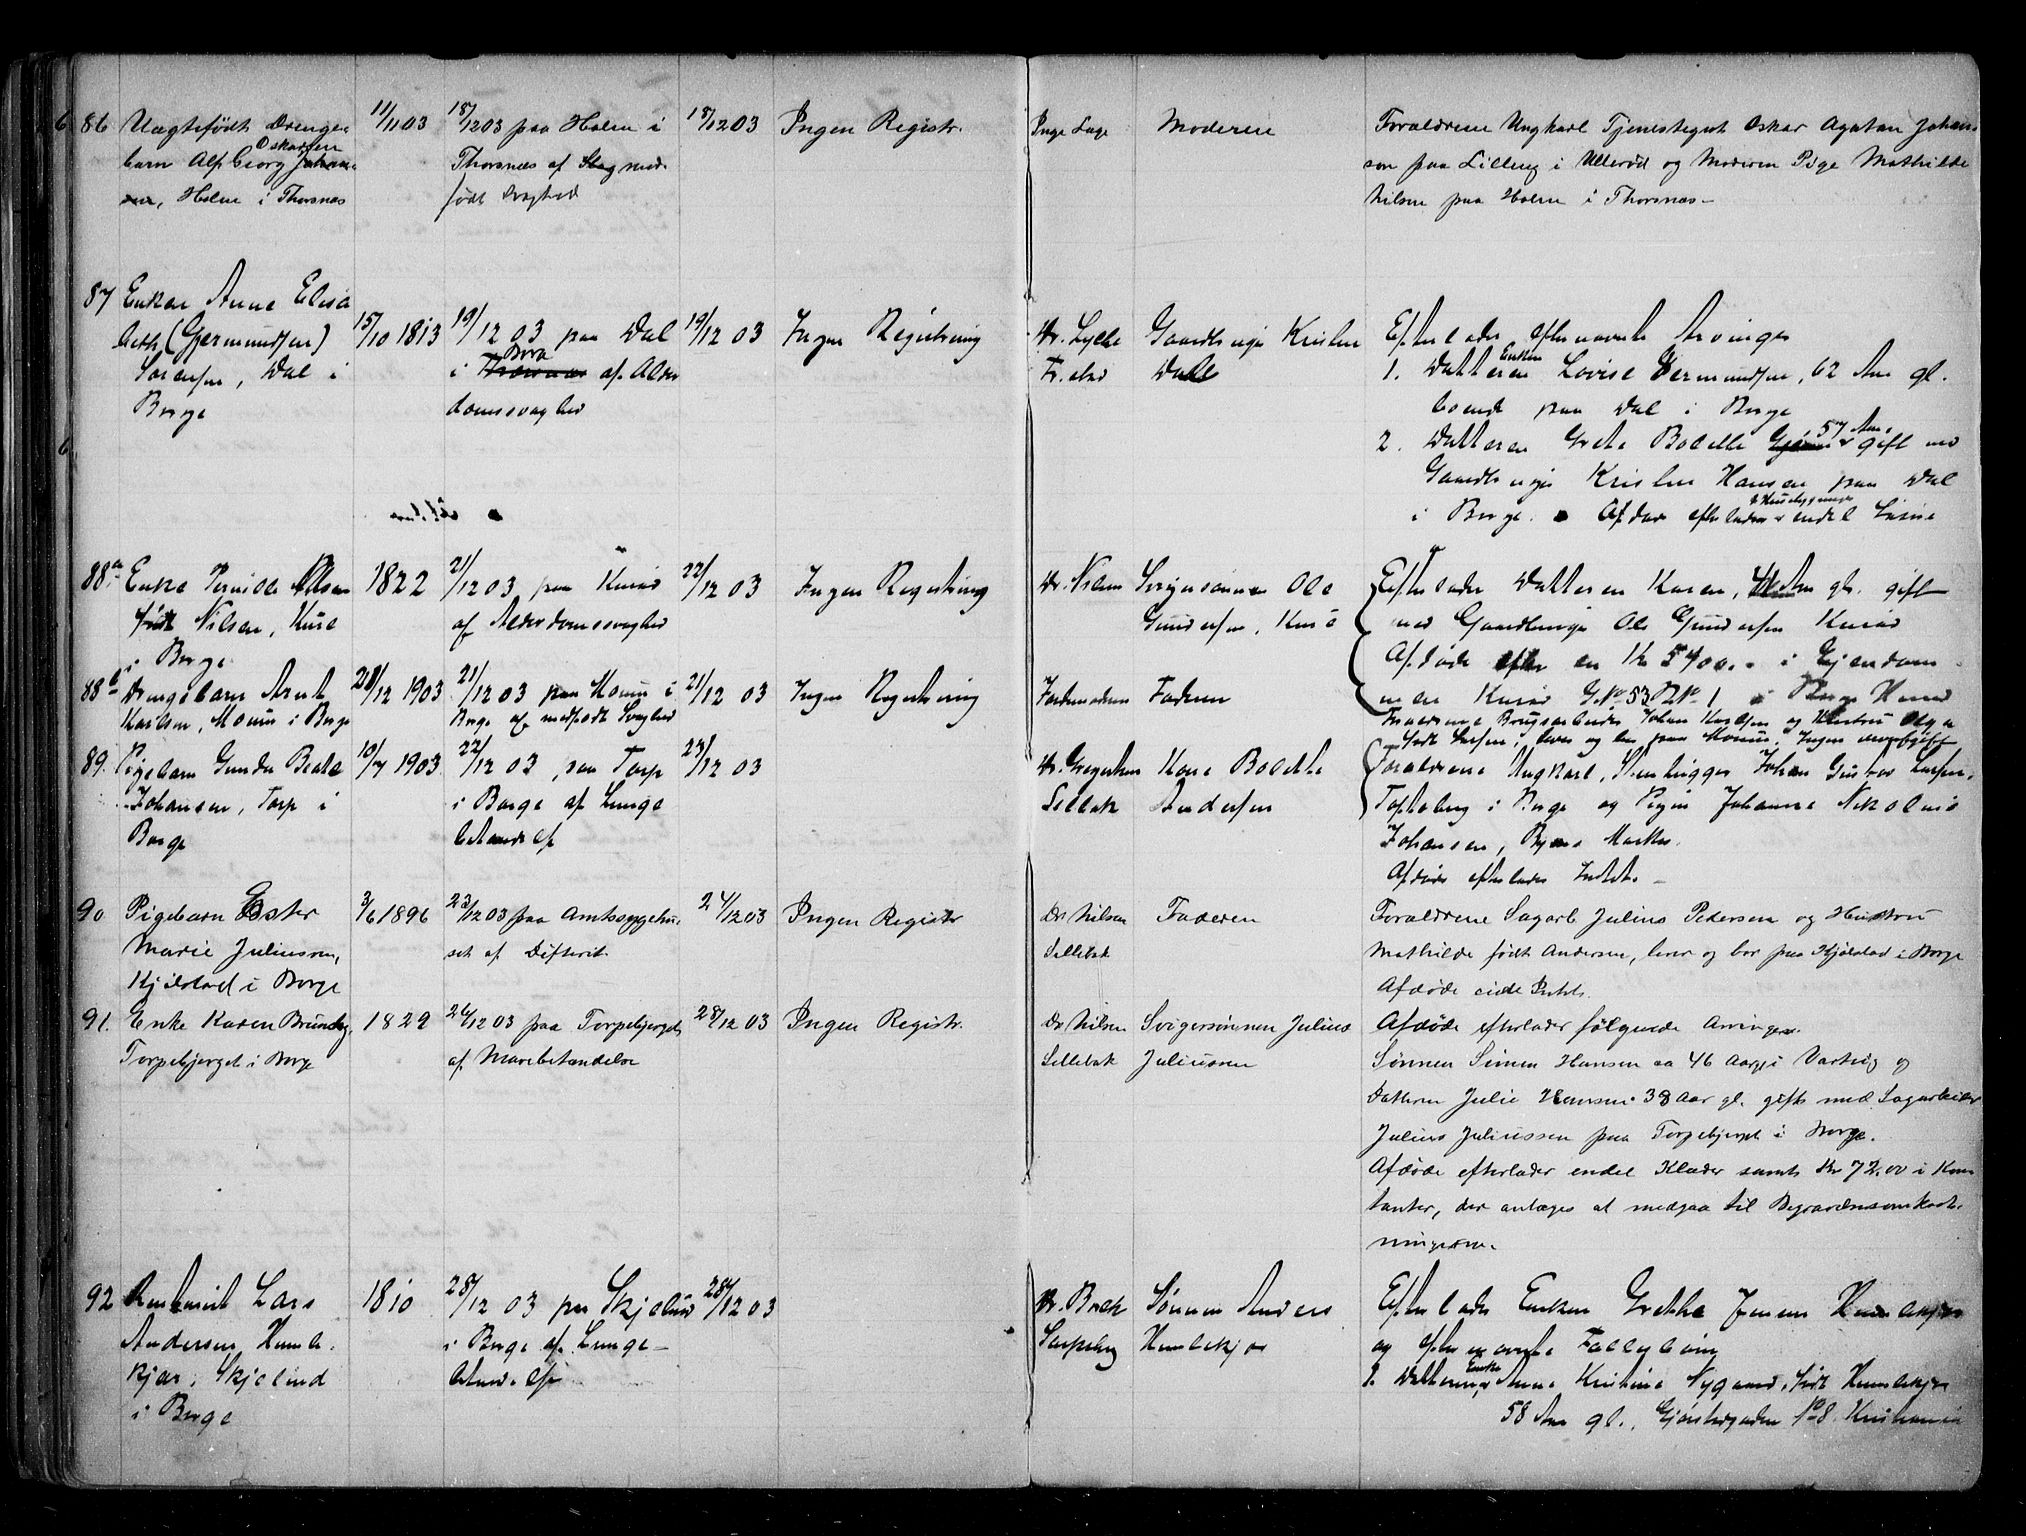 86 Uægtefødt Drenge-
barn Alf Georg Oskarsen
Holm i Thorsnæs
11/11 03
18/12 03 paa Holm i
Thorsnæs af med-
født Svaghed
18/12 03
Ingen Registr.
Inge Læge
Moderen
Forældrene Ungkarl Tjenestegut Oskar Agaton Johans-
son paa Lilleng i Ullerød og Moderen Pige Mathilde
Nilsen paa Holm i Thorsnæs
87 Enken Anne Elisa
beth (Gjermundsen)
Sørensen, Dal i
Borge
15/10 1813
19/12 03 paa Dal
i Borge af Alder
domssvaghed
19/12 03
Ingen Registrering
Dr. Lycke
Fr.stad
Gaardbruger Kristen
Dal
Efterlader efternævnte Arvinger
1. Datteren Enken Lovise Germundsen, 62 Aar gl.
boende paa Dal i Borge
2. Datteren Grete Bolette 57 Aar gift med
Gaardbruger Kristen Hansen paa Dal
i Borge. Afdøde efterlader endel Løsøre
88a Enke Pernille Olsen
født Nilsen, Kure
i Borge
1822
21/12 03 paa Kurød
af Alderdomssvaghed
22/12 03
Ingen Registrering
Dr. Nilsen
Svigersønnen Ole
Gundersen, Kurø
Efterlader Datteren Karen, Aar gl. gift
med Gaardbruger Ole Gundersen Kurød
Afdøde en Kr 5400.- i Ejendom-
men Kurød GNo 53 BNo 1 i Borge Herred
88b Drengebarn Arnt
Karlsen, Moum i Borge
21/12 1903
21/12 03 paa Moum i
Borge af medfødt Svaghed
21/12 03
Ingen Registrering
Jordemoderen
Faderen
Forældrene Brugsarbeider Johan Karlsen og Hustru Olga
født Larsen, lever og bor paa Moum. Ingen
89. Pigebarn Gunda Beate
Johansen, Torp i
Borge
10/7 1903
22/12 03 paa Torp
i Borge af Lunge
betændelse
23/12 03
Dr. Gregersen
Sellebak
Kone Bolette
Andersen
Forældrene Ungkarl, Stenhugger Johan Gustav Larsen,
Tofteberg i Borge og Pigen Johanne Nikoline
Johansen,
Afdøde efterlader Intet.
90 Pigebarn Ester
Marie Juliussen,
Kjølstad i Borge
3/6 1896
23/12 03 paa Amtssygehu-
set af Difterit.
24/12 03
Ingen Registr
Dr Nilsen
Sellebak
Faderen
Forældrene Sagarb. Julius Pedersen og Hustru
Mathilde født Andersen, lever og bor paa Kjølstad i Borge
Afdøde eiede Intet.
91. Enke Karen Brundtz,
Torpebjerget i Borge
1829
26/12 03 paa Torpebjerget
af Mavebetændelse
28/12 03
Ingen Registr.
Dr Nilsen
Sellebak
Svigersønnen Julius
Juliussen
Afdøde efterlader følgende Arvinger
Sønnen Simen Hansen ca 46 Aar i Varteig og
Datteren Julie Hansen 38 Aar gl. gift med Sagarbeider
Julius Juliussen paa Torpebjerget i Borge.
Afdøde efterlader endel Klæder samt Kr 72,00 i Kon
tanter, der antages at medgaa til Begravelsesomkost-
ningerne.
92 Lars
Andersen Humle-
kjær, Skjelind
i Borge
1810
28/12 03 paa Skjelind
i Borge af Lunge-
betændelse
28/12 03
Dr. Bræk
Sarpsborg
Sønnen Anders
Humlekjær
Efterlader Enken Grethe Jensen Humlekjær
og efternævnte Fællesbørn
1. Datteren Enke Anne Kristine Nygaard, født Humlekjær
58 Aar gl., No 8. Kristiania